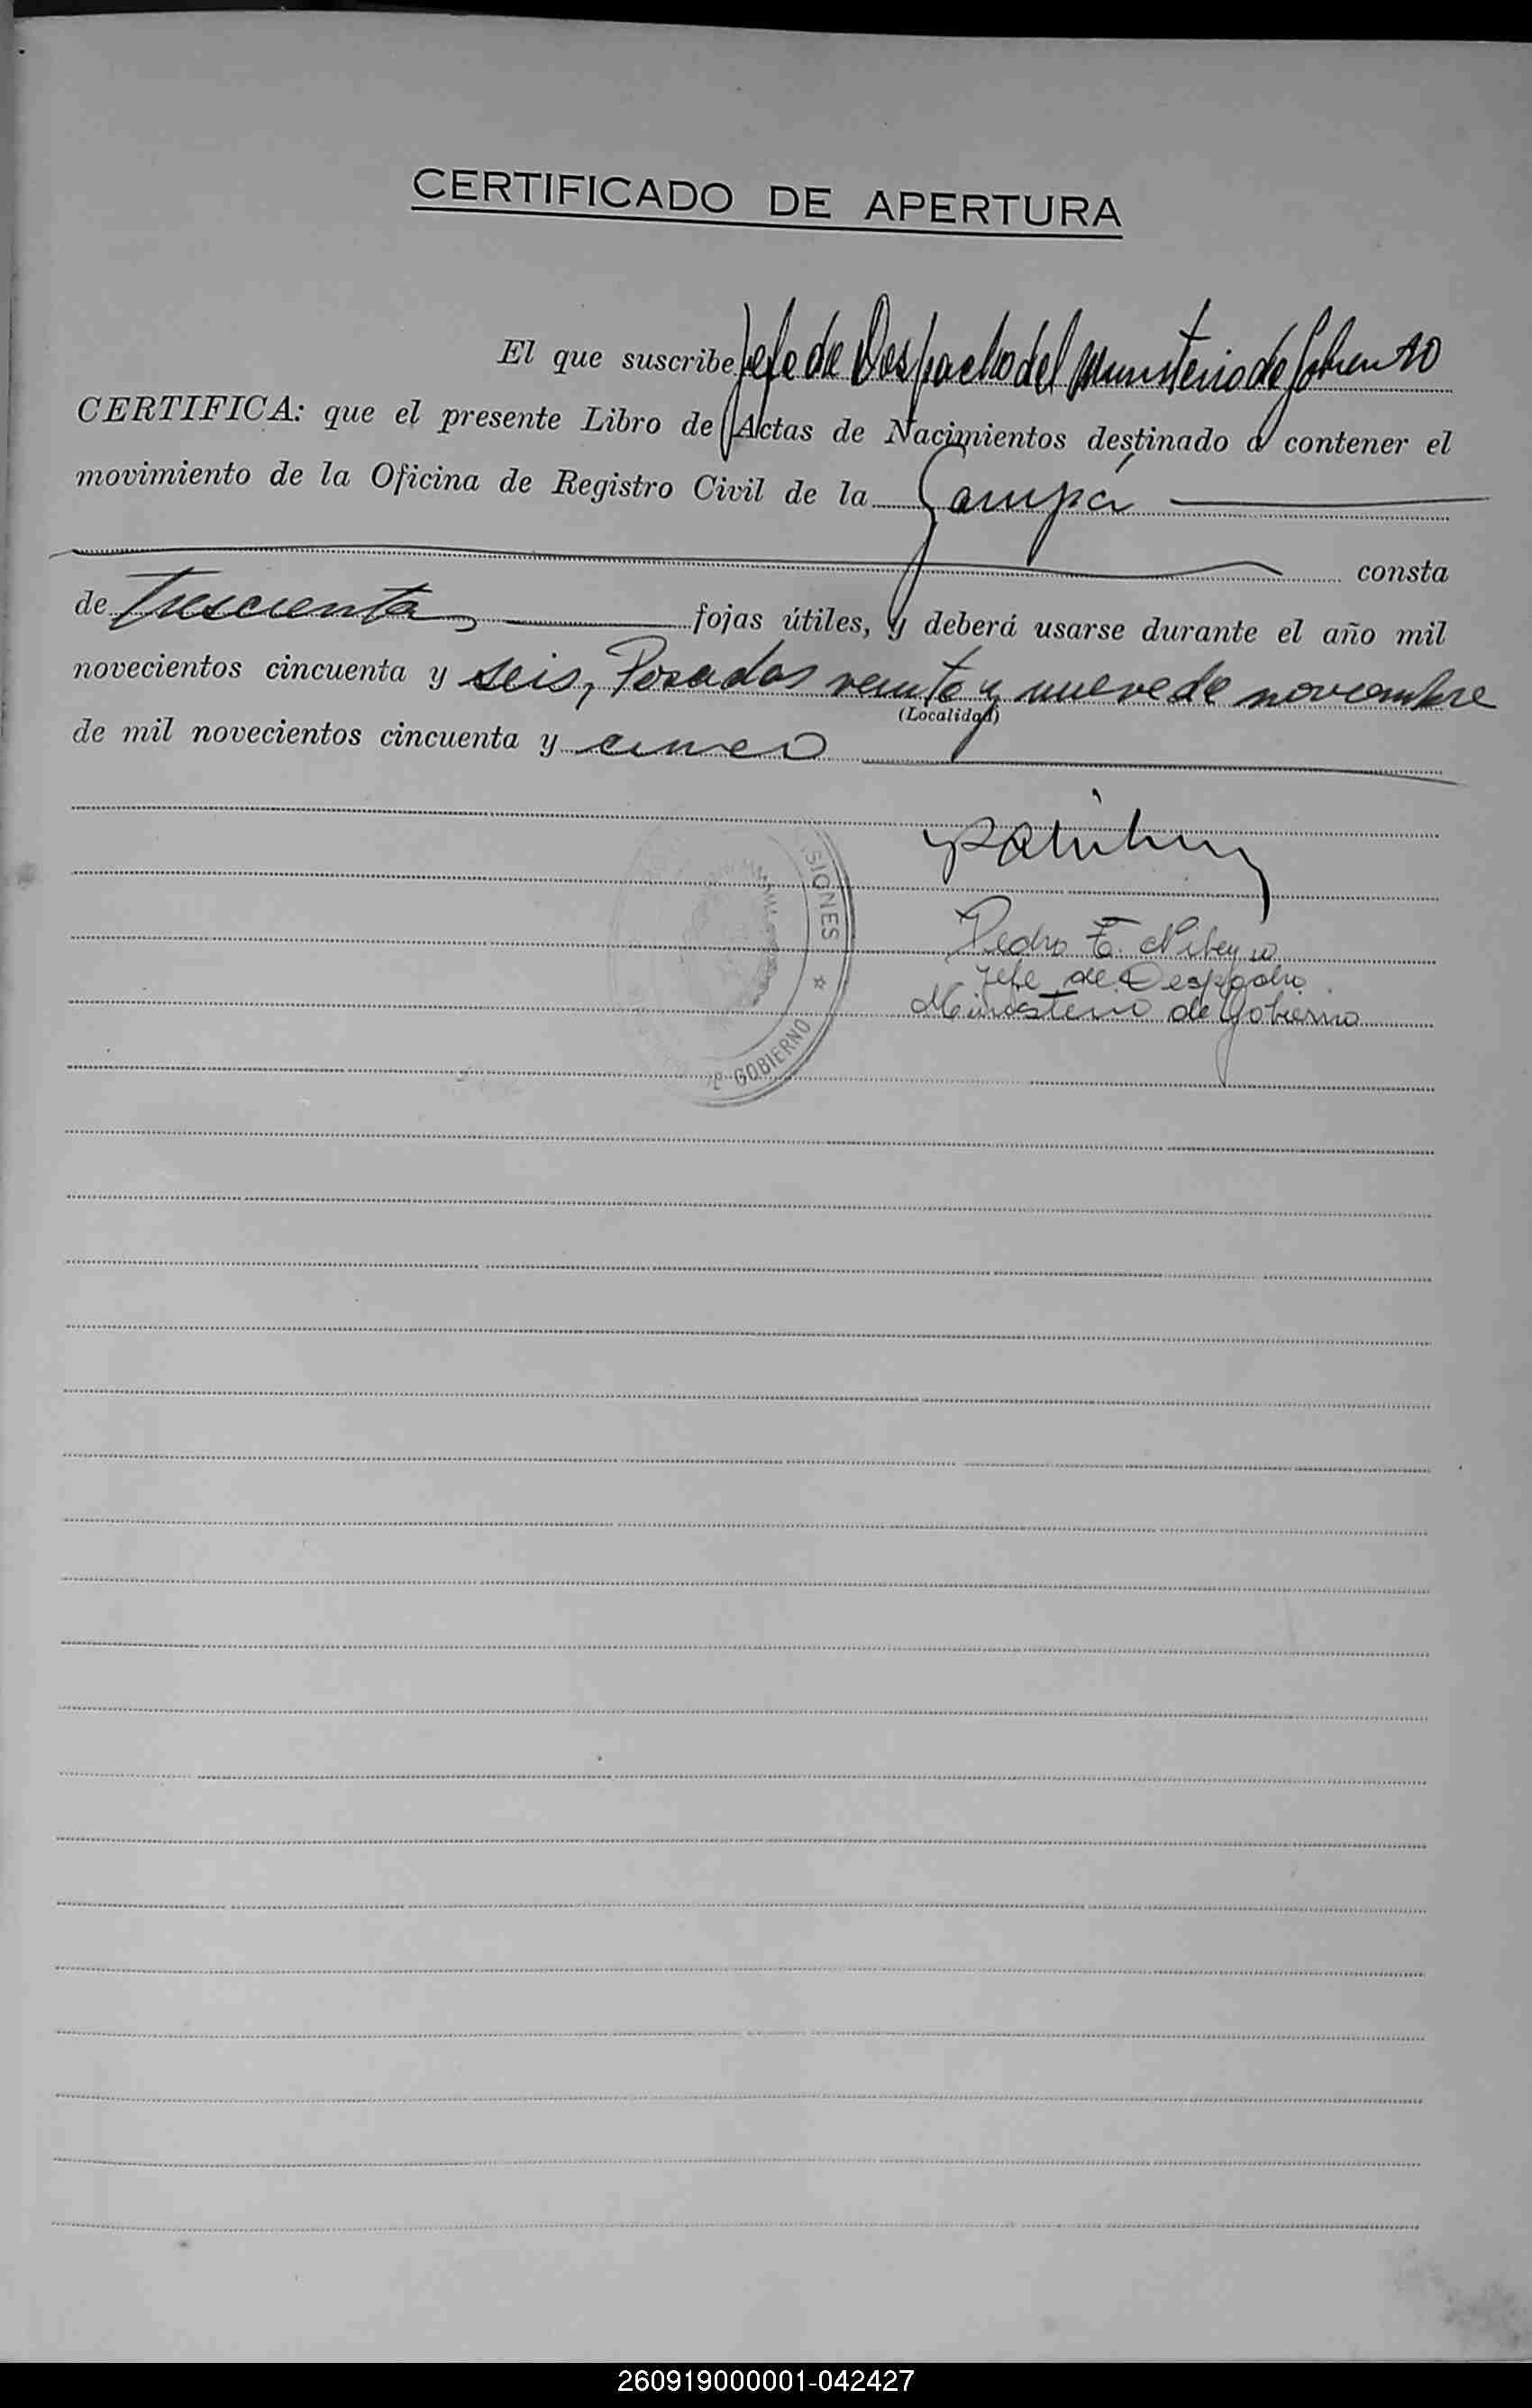 CERTIFICADO DE APERTURA
El que suscribe Jefe de Despacho del Ministerio de Gobierno
CERTIFICA: que el presente Libro de Actas de Nacimientos destinado a contener el
movimiento de la Oficina de Registro Civil de la Garupá
consta
de Trescientas fojas útiles, y deberá usarse durante el año mil
novecientos cincuenta y seis, Posadas veinte y nueve de noviembre
(Localidad)
de mil novecientos cincuenta y cinco
SIONES
GOBIERNO
Pedro E.
Jefe de Despacho
Ministerio de Gobierno
260919000001-042427